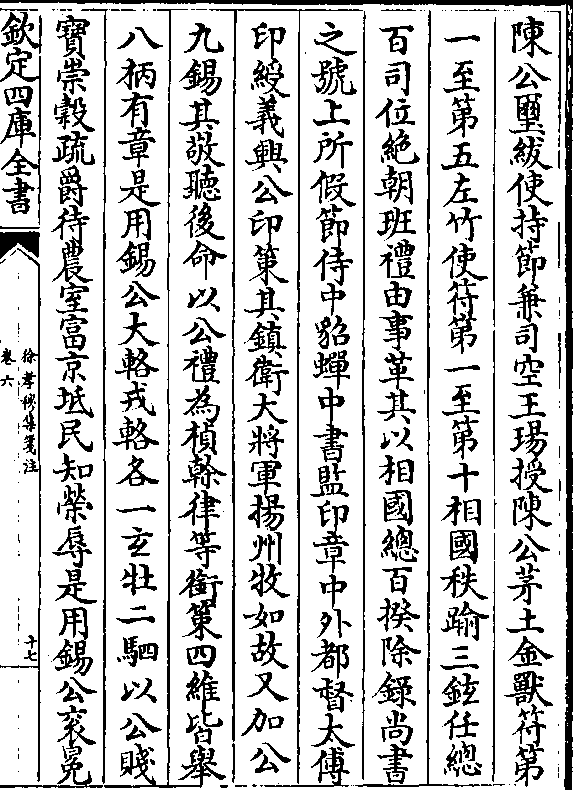 陳公璽紱使持節兼司空王瑒授陳公茅土金獸符第
一至第五左竹使符第一至第十相國秩踰三鉉任總
百司位絶朝班禮由事革其以相國總百揆除錄尚書
之號上所假節侍中貂蟬中書監印章中外都督太傅
印綬義興公印策其鎮衛大將軍揚州牧如故又加公
九錫其敬聽後命以公禮為楨榦律等銜策四維皆舉
八柄有章是用錫公大輅戎輅各一玄牡二駟以公賤
寳崇穀疏爵待農室富京坻民知榮辱是用錫公衮冕
欽定四庫全書
徐孝穆集箋注
卷六
十七